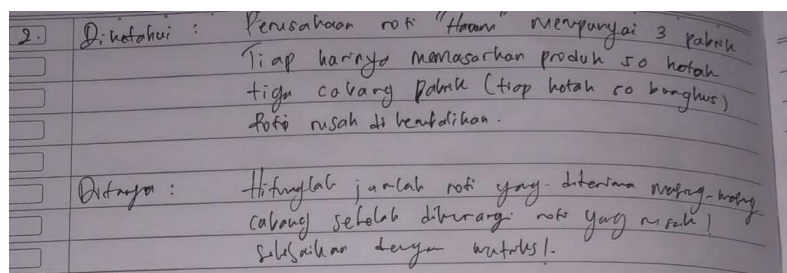 2. Diketahui : Perusahaan roti "Haam" mempunyai 3 pabrik
Tiap harinya memasarkan produk 50 kotak
tiga cabang pabrik (tiap kotak 50 bungkus)
roti rusak di kembalikan.
Ditanya : Hitunglah jumlah roti yang diterima masing-masing
cabang setelah dikurangi roti yang rusak!
Selesaikan dengan matriks!.